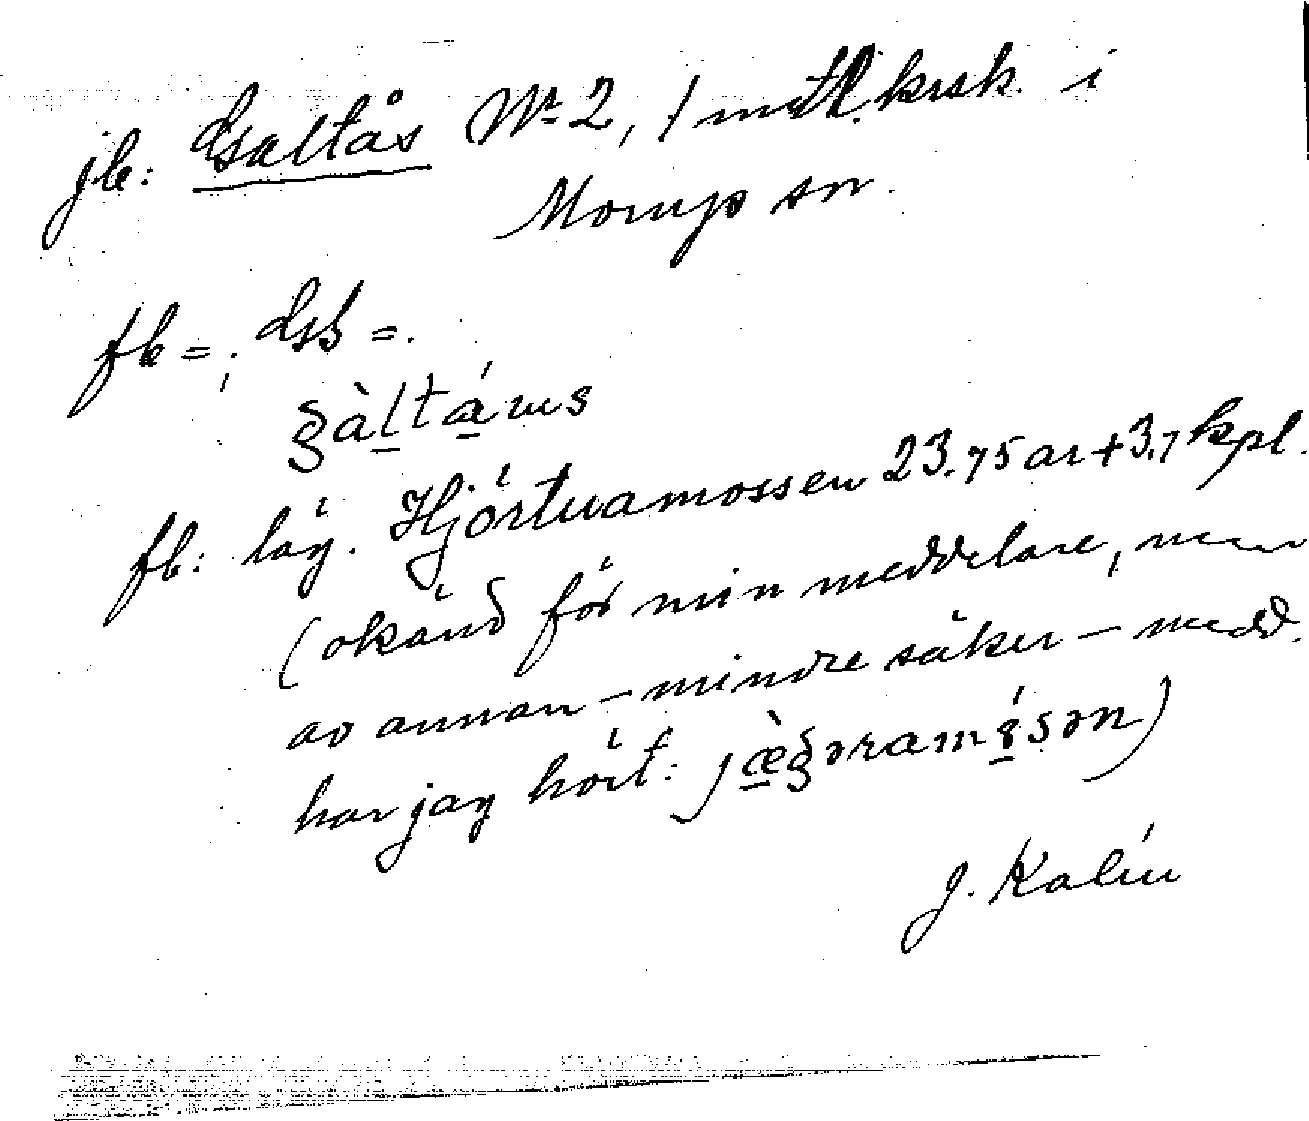 jb: Galtås Nr 2, 1 mtl krsk. i
Morups sn.
fb = ; dsb = .
gàltás
fb: läg. Hjörtvamossen 23.75 ar + 3.7 kpl.
(okänd för min meddelare, men
av annan – mindre säker – medd.
har jag hört: jæ̀gəramósən)
J. Kalén